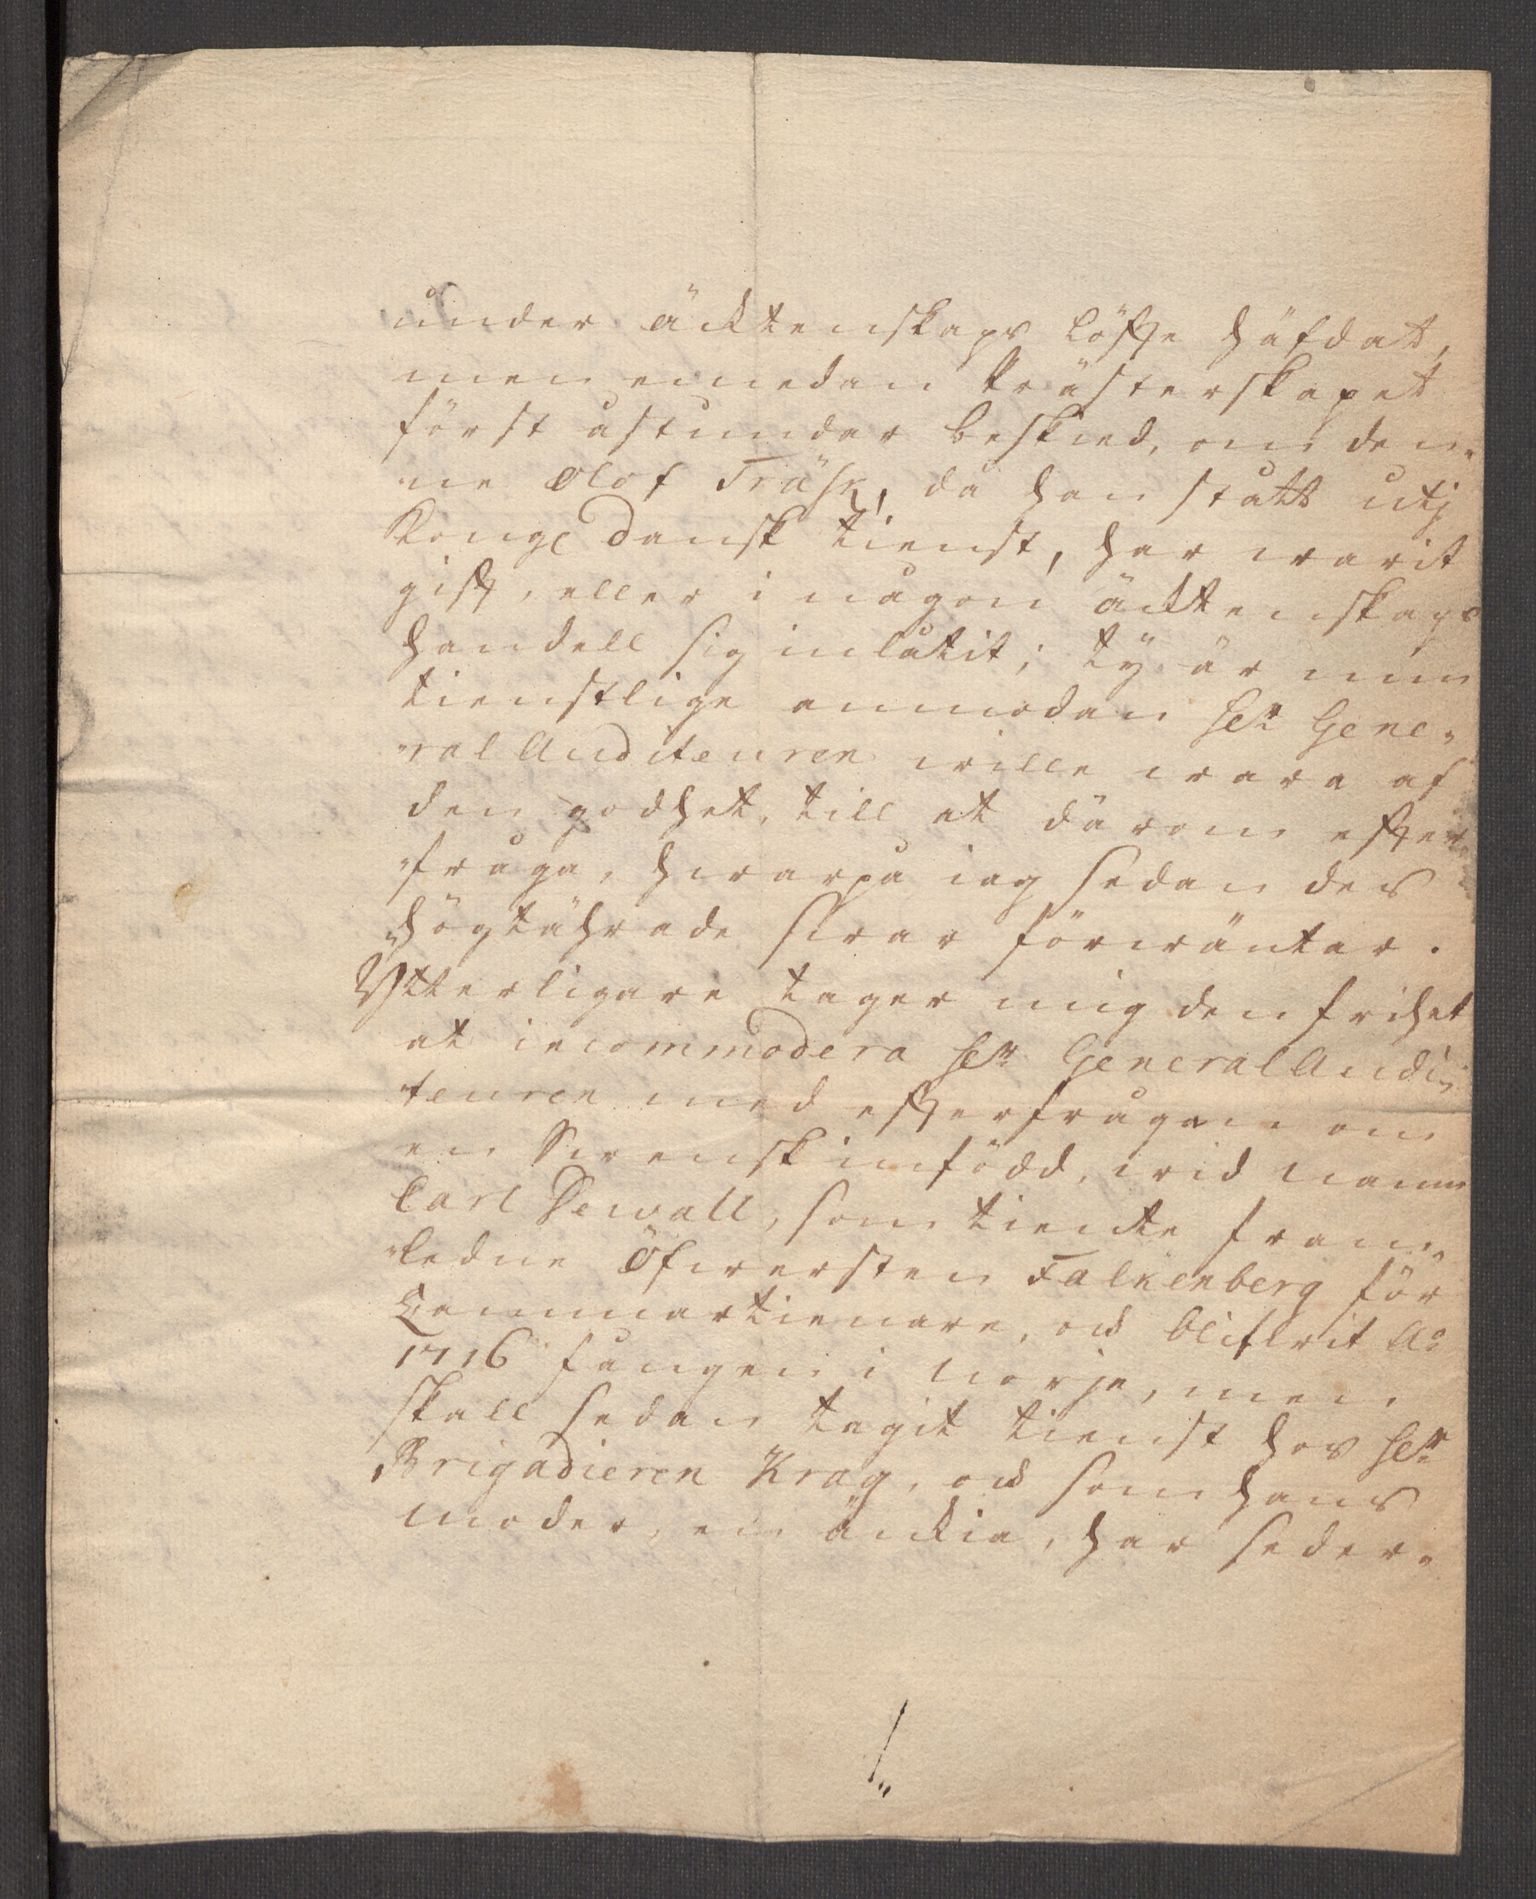 under ächtenskaps löffte häfdat,
men emedan Prästerskapet
först åstundar beskied, om den-
ne Olof Träsk, då han stått utj
Kongl dansk tienst, har warit
gifft, eller i någon ächtenskaps
handell sig inlåtit; ty är min
tienstlige anmodan Hr Gene-
ral Auditeuren wille wara af
den godhet, till at därom effter
fråga, hwarpå iag sedan des
högtährade swar förwäntar.
Ytterligare tager mig den frihet
at incommodera Hr General Audi-
teuren med effterfrågan om
en Swensk infödd, wid namn
Carl Sewall, som tiente fram-
ledne Öfwersten Falkenberg för
Cammartienare, och blifwit Ao
1716 fången i Norje, men
skall sedan tagit tienst hos Hr
Brigadieren Krag, och som hans
moder, en änckia, har seder-